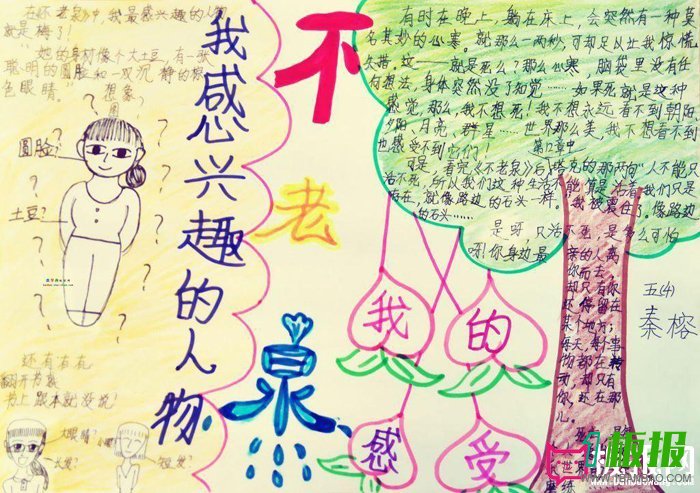 在《不老泉》中，我最感兴趣的人物
就是梅了！
"她的身材像个大土豆，有一张
聪明的圆脸和一双沉静的棕
色眼睛。"
想象
圆脸?
土豆?
还有右右
翻开书装
书上跟本就没说
大眼睛?
长发?
短发?
我感兴趣的人物
不
老
泉
我
的
感
受
有时在晚上，躺在床上，会突然有一种莫
名其妙的心寒。就那么一两秒，可却足以让我惊慌
失措。这一一就是死么？那么心寒，脑袋里没有任
何想法，身体突然没了知觉……如果死就是这种
感觉，那么，我不想死！我不想永远看不到朝阳
夕阳、月亮、群星……世界那么美，我不想看不到
也感受不到它们！
第12章中
可是，看完《不老泉》后塔克的那两句"人不能只
活不死，所以我们这种生活不能算是活着，我们只是
存在，就像路边的石头一样。"我被震住了。像路边
的石头……
是呀，只活不死，是多么可怕
呀！你身边最
亲的人离
你而去，
却只有你
还停留在
某个地方；
每天，每个事
物都在转
动，却只有
你，还在那
儿。
五(4)
秦榕
板报